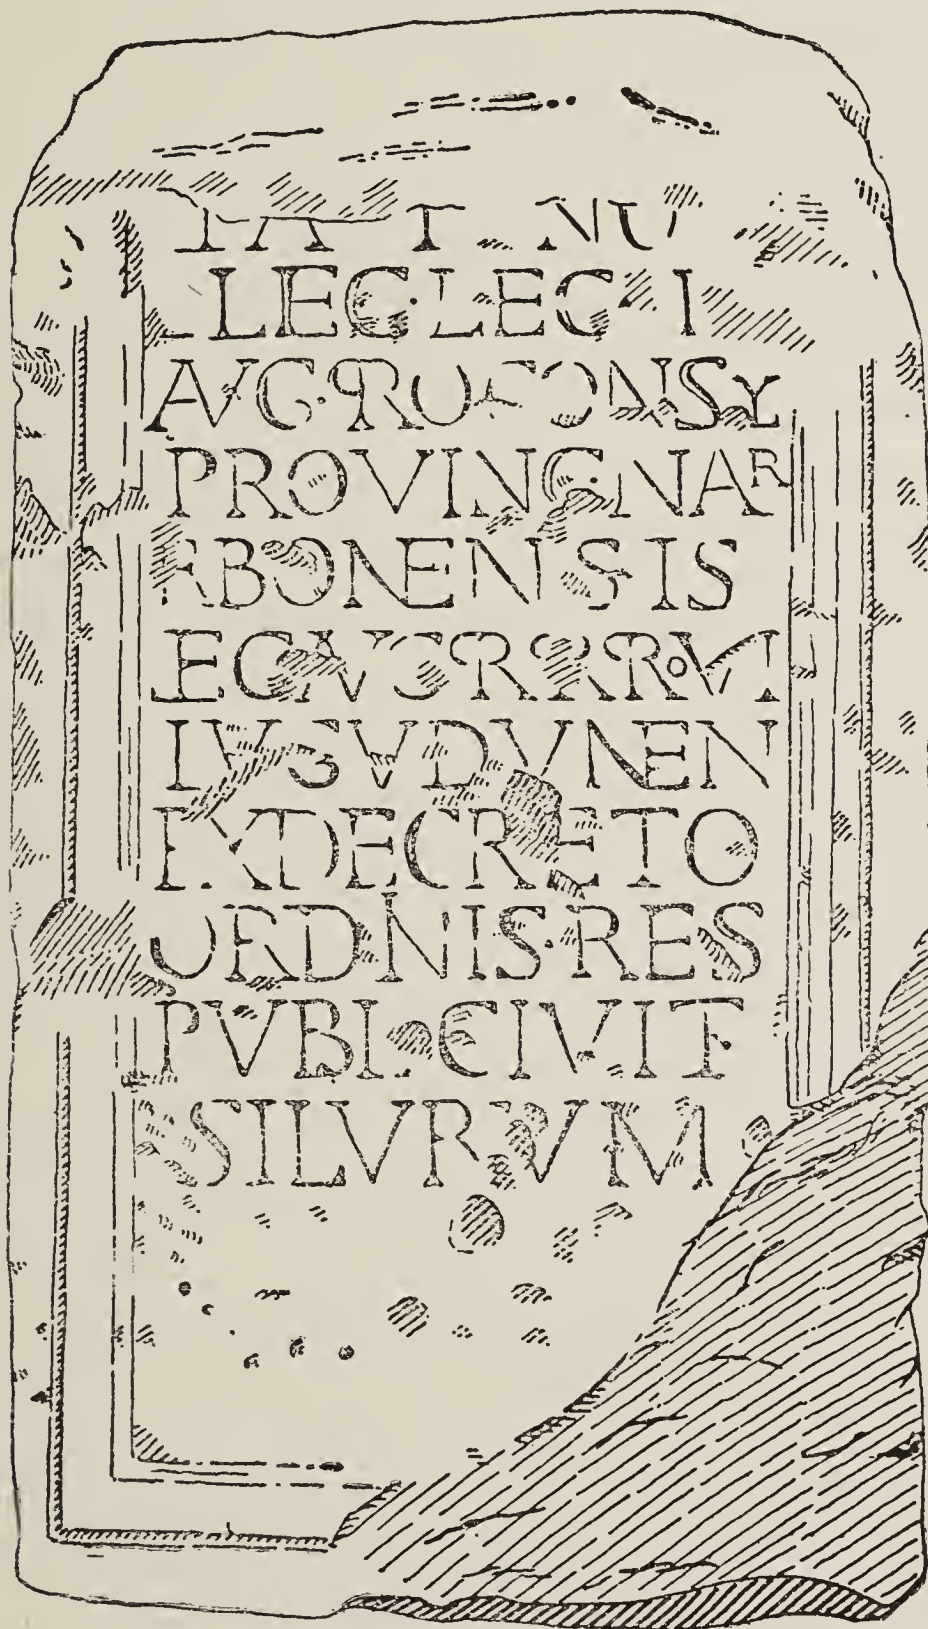 LEG·LEG·I
AVG·PROCONS
PROVINC·NAR
BONENSIS
LEG AVG PR PR PROVI
LVGVDVNEN
EX DECRETO
ORDINIS·RES
PVBL·CIVIT
SILVRVM